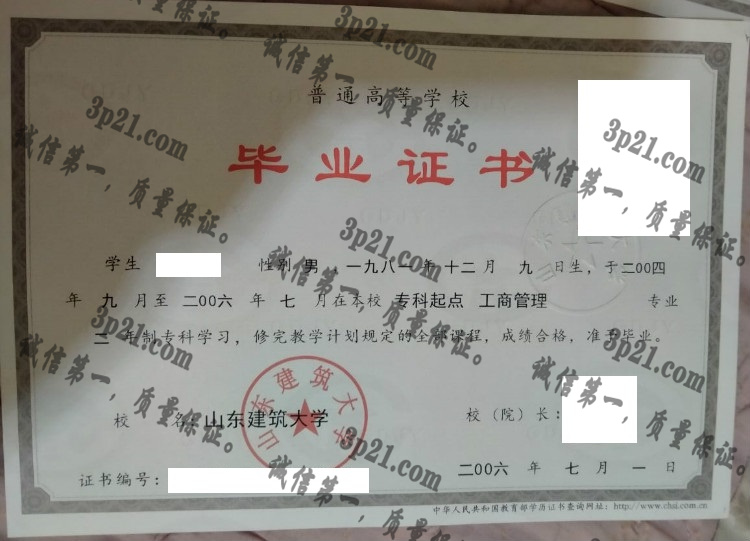 普通高等学校
毕业证书
学生 性别 男 ，一九八一 年 十二 月 九 日生，于二00四
年 九 月至 二00六 年 七 月在本校 专科起点 工商管理 专业
二 年制专科学习，修完教学计划规定的全部课程，成绩合格，准予毕业。
校 名：山东建筑大学
校（院）长：
山东建筑大学
证书编号：
二00六 年 七 月 一 日
中华人民共和国教育部学历证书查询网址：http://www.chsi.com.cn
3p21.com
诚信第一，质量保证。
3p21.com
诚信第一，质量保证。
3p21.com
诚信第一，质量保证。
3p21.com
诚信第一，质量保证。
3p21.com
诚信第一，质量保证。
3p21.com
诚信第一，质量保证。
3p21.com
诚信第一，质量保证。
3p21.com
诚信第一，质量保证。